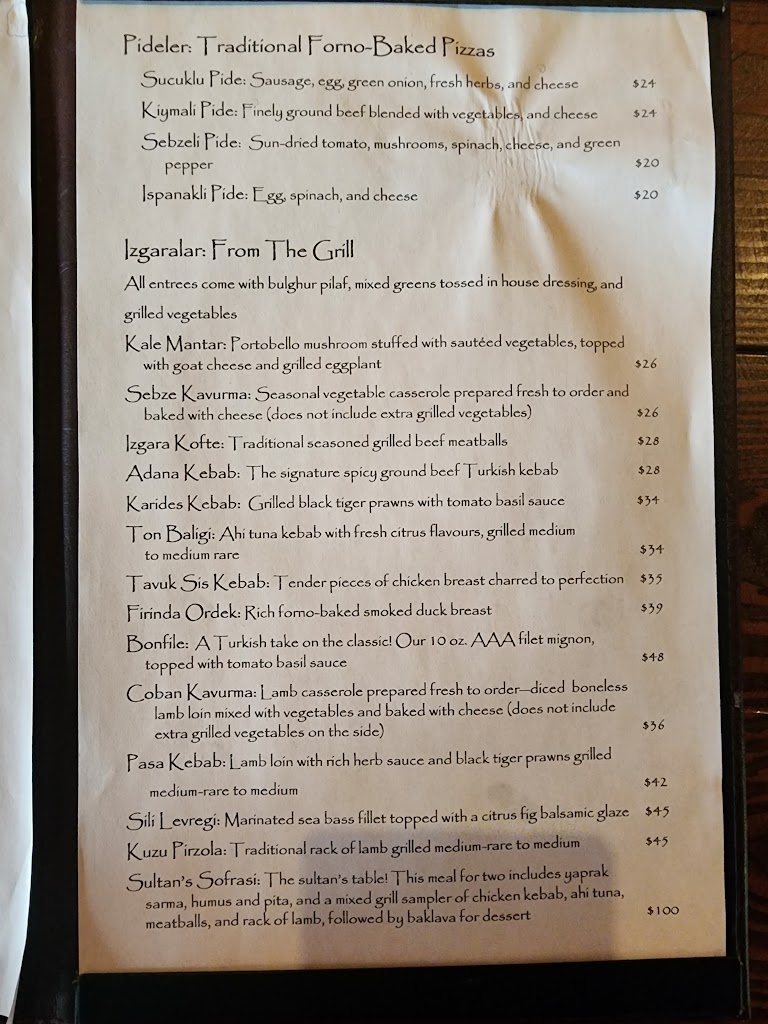 Pideler: Traditional Forno-Baked Pizzas
Sucuklu Pide: Sausage, egg, green onion, fresh herbs, and cheese $24
Kiymali Pide: Finely ground beef blended with vegetables, and cheese $24
Sebzeli Pide: Sun-dried tomato, mushrooms, spinach, cheese, and green
pepper $20
Ispanakli Pide: Egg, spinach, and cheese $20
Izgaralar: From The Grill
All entrees come with bulghur pilaf, mixed greens tossed in house dressing, and
grilled vegetables
Kale Mantar: Portobello mushroom stuffed with sautéed vegetables, topped
with goat cheese and grilled eggplant $26
Sebze Kavurma: Seasonal vegetable casserole prepared fresh to order and
baked with cheese (does not include extra grilled vegetables) $26
Izgara Kofte: Traditional seasoned grilled beef meatballs $28
Adana Kebab: The signature spicy ground beef Turkish kebab $28
Karides Kebab: Grilled black tiger prawns with tomato basil sauce $34
Ton Baligi: Ahi tuna kebab with fresh citrus flavours, grilled medium
to medium rare $34
Tavuk Sis Kebab: Tender pieces of chicken breast charred to perfection $35
Firinda Ordek: Rich forno-baked smoked duck breast $39
Bonfile: A Turkish take on the classic! Our 10 oz. AAA filet mignon,
topped with tomato basil sauce $48
Coban Kavurma: Lamb casserole prepared fresh to order—diced boneless
lamb loin mixed with vegetables and baked with cheese (does not include
extra grilled vegetables on the side) $36
Pasa Kebab: Lamb loin with rich herb sauce and black tiger prawns grilled
medium-rare to medium $42
Sili Levregi: Marinated sea bass fillet topped with a citrus fig balsamic glaze $45
Kuzu Pirzola: Traditional rack of lamb grilled medium-rare to medium $45
Sultan's Sofrasi: The sultan's table! This meal for two includes yaprak
sarma, humus and pita, and a mixed grill sampler of chicken kebab, ahi tuna,
meatballs, and rack of lamb, followed by baklava for dessert $100